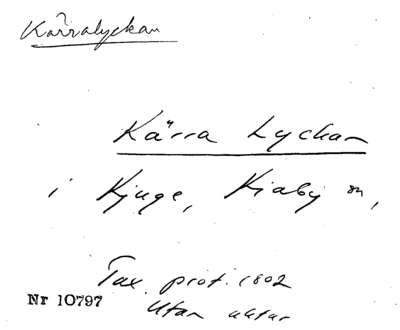 Kärralyckan
Kärra Lyckan
i Kjuge, Kiaby sn,
Tax. prot. 1802
Nr 10797
Utan aktnr